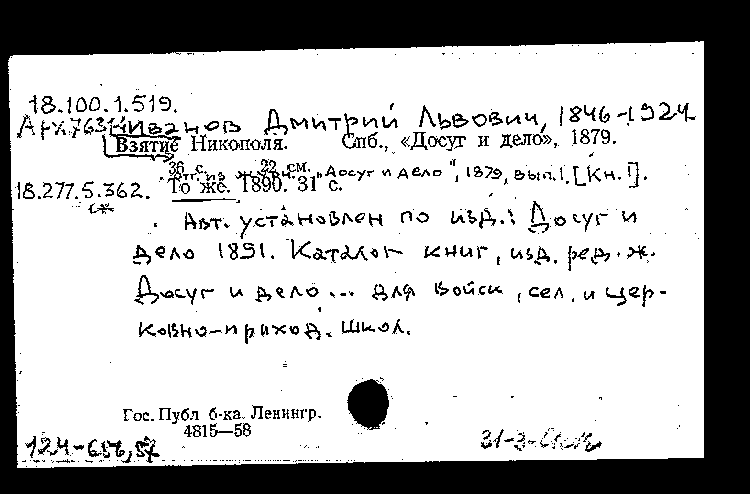 18.100.1.519.
Арх.7631 Иванов Дмитрий Львович, 1846-1924
Взятие Никополя. Спб., «Досуг и дело», 1879.
36 с. 22 см. „Досуг и дело", 1879, вып. 1. [Кн. 1].
18.277.5.362. То же. 1890. 31 с.
Авт. установлен по изд.: Досуг и
дело 1891. Каталог книг, изд. ред. ж.
Досуг и дело... для войск, сел. и цер-
ковно-приход. школ.
Гос. Публ б-ка. Ленингр.
4815—58
124-656,57